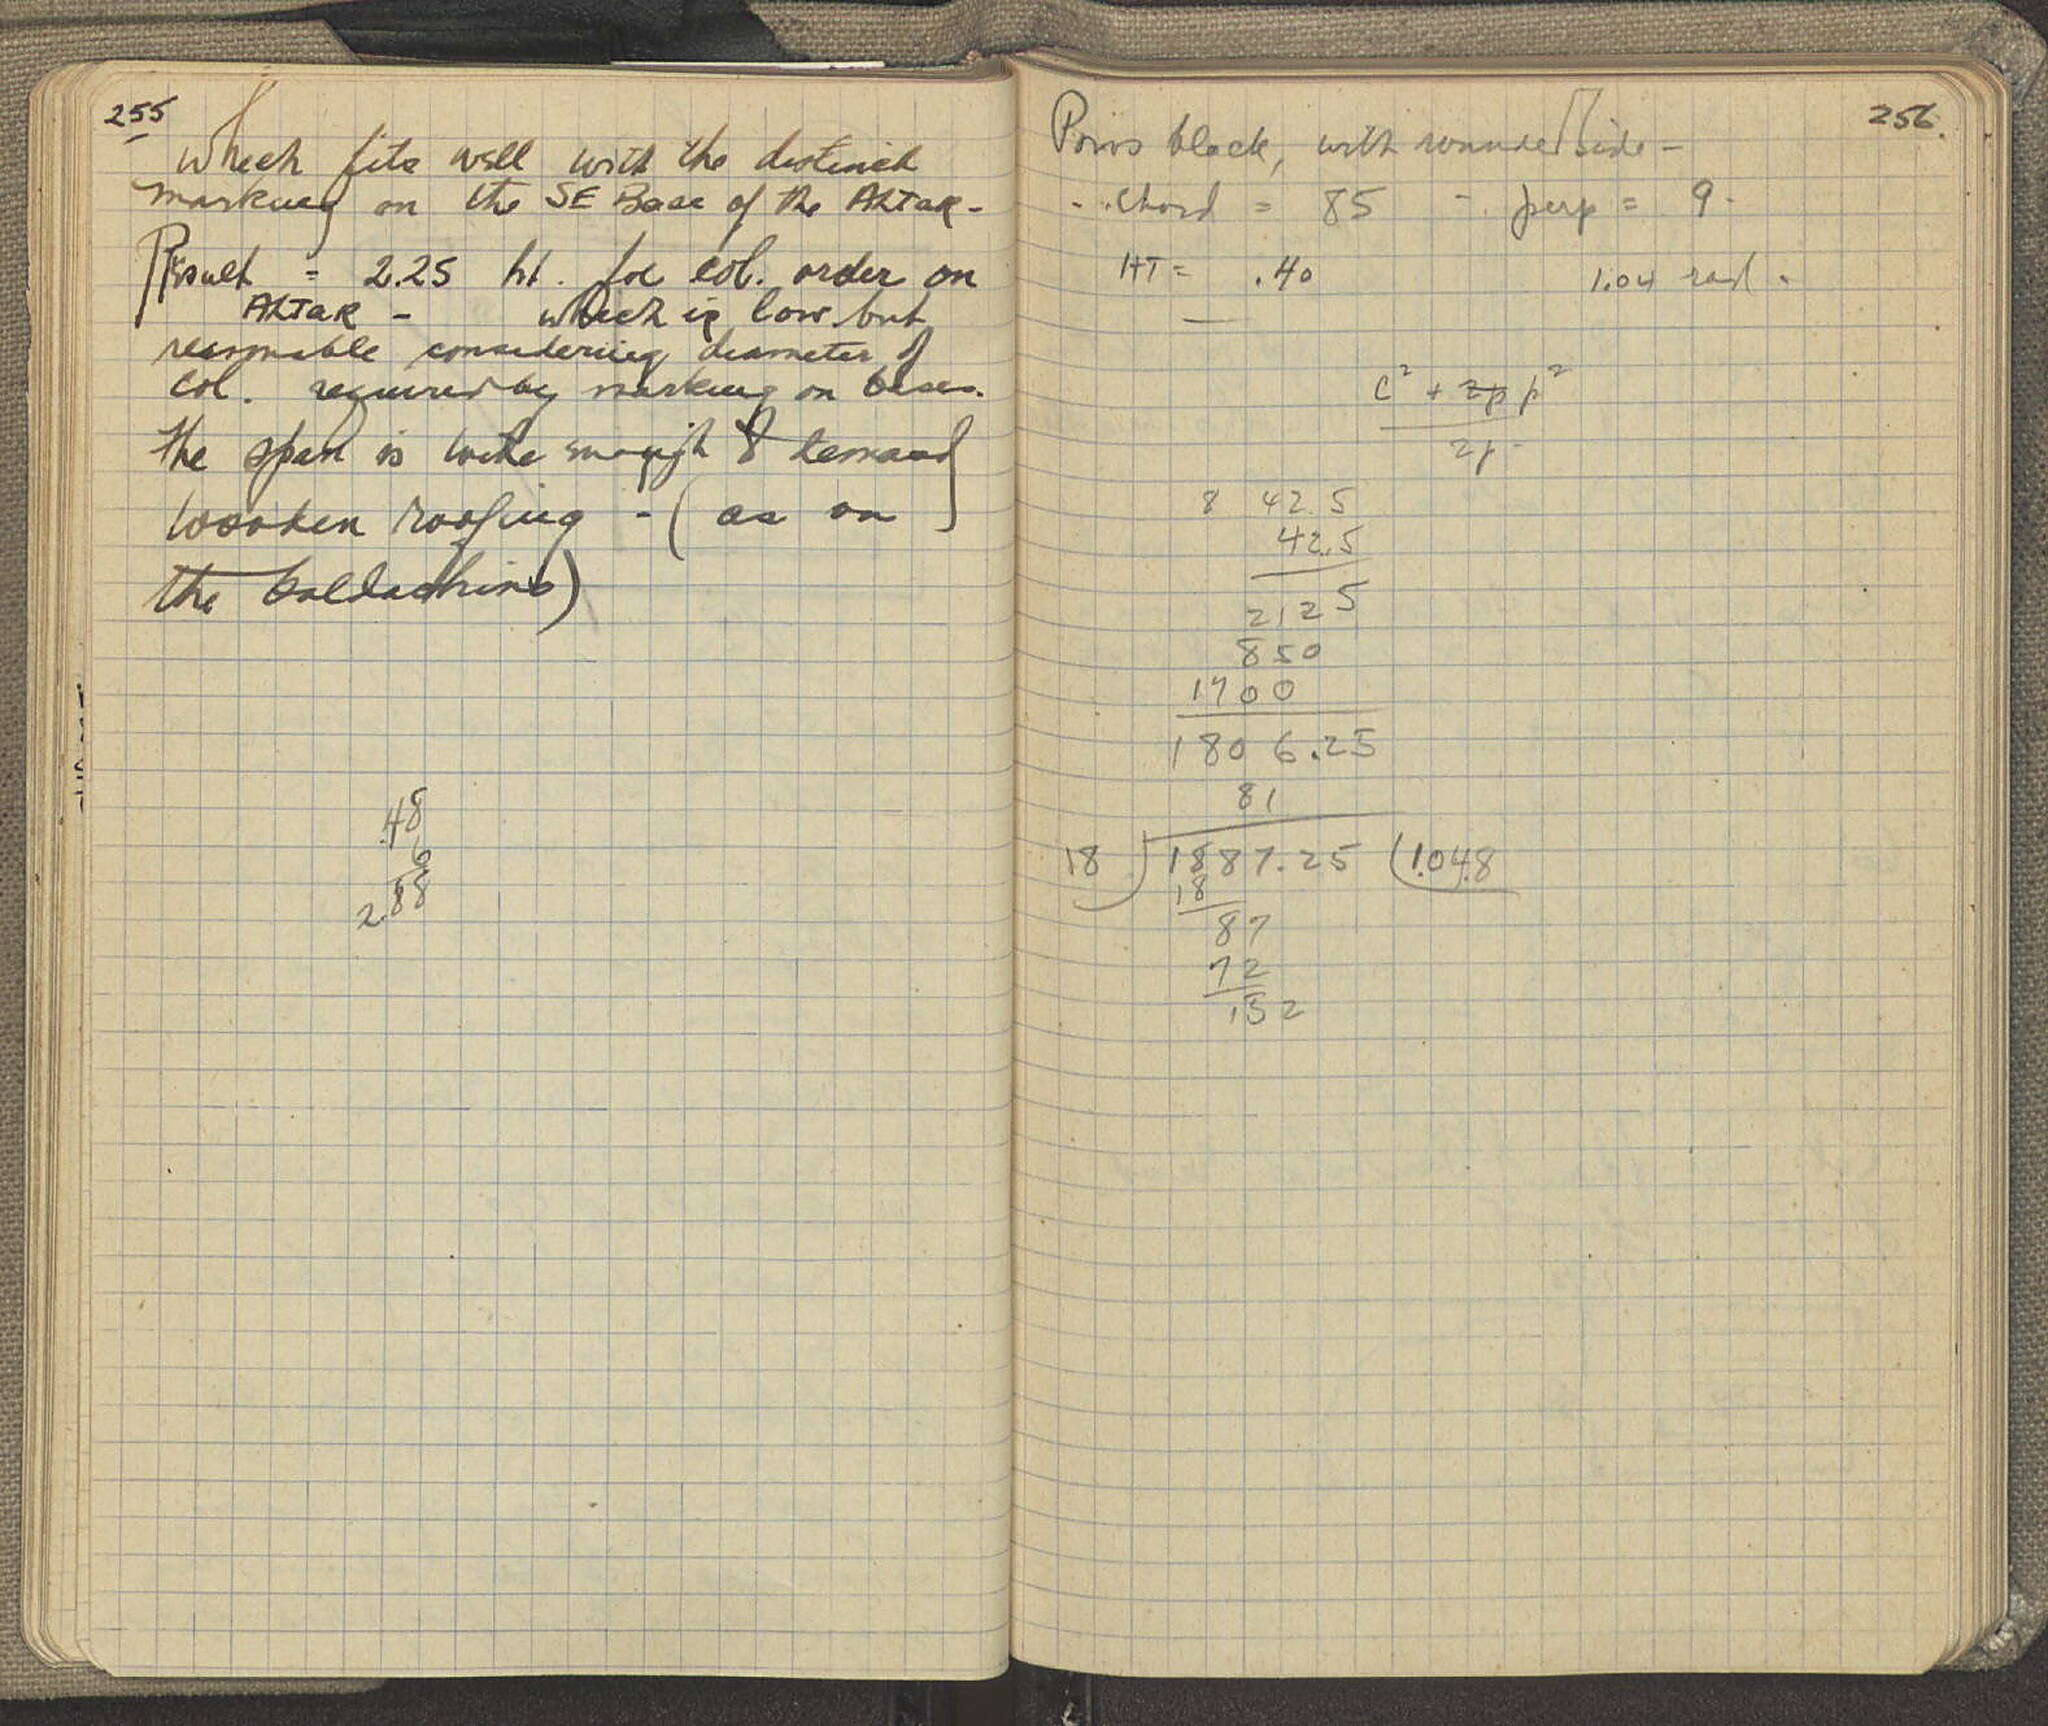 255
which fits well with the distinct
marking on the SE Base of the ALTAR -
Result = 2.25 ht. for col. order on
ALTAR - which is low but
reasonable considering diameter of
col. required by marking on bases.
the span is wide enough to demand
wooden roofing - ( as on
the baldachino )
.48
6
2.88
256.
Poros block, with rounded side -
chord = 85 - perp = 9.
HT = .40 1.04 rad.
c² + 2p p²
2p
8 42.5
42.5
2125
850
1700
1806.25
81
18 ) 1887.25 ( 1.04.8
18
87
72
152